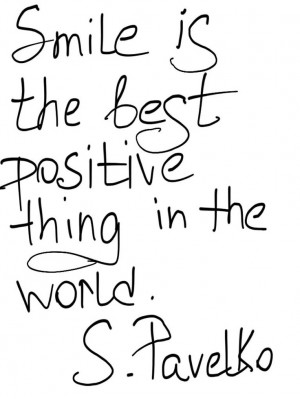 Smile is
the best
positive
thing in the
world.
S. Pavelko